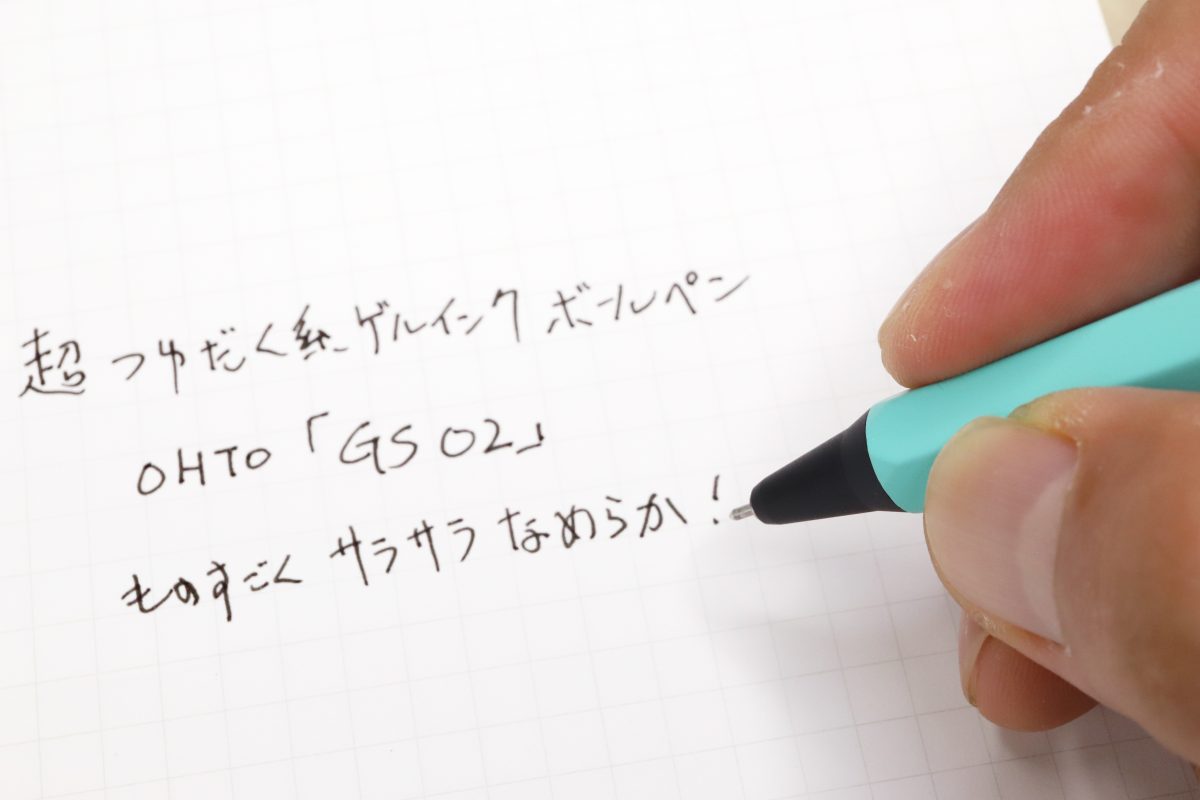 超つゆだく系ゲルインクボールペン
OHTO「GS02」
ものすごくサラサラなめらか!